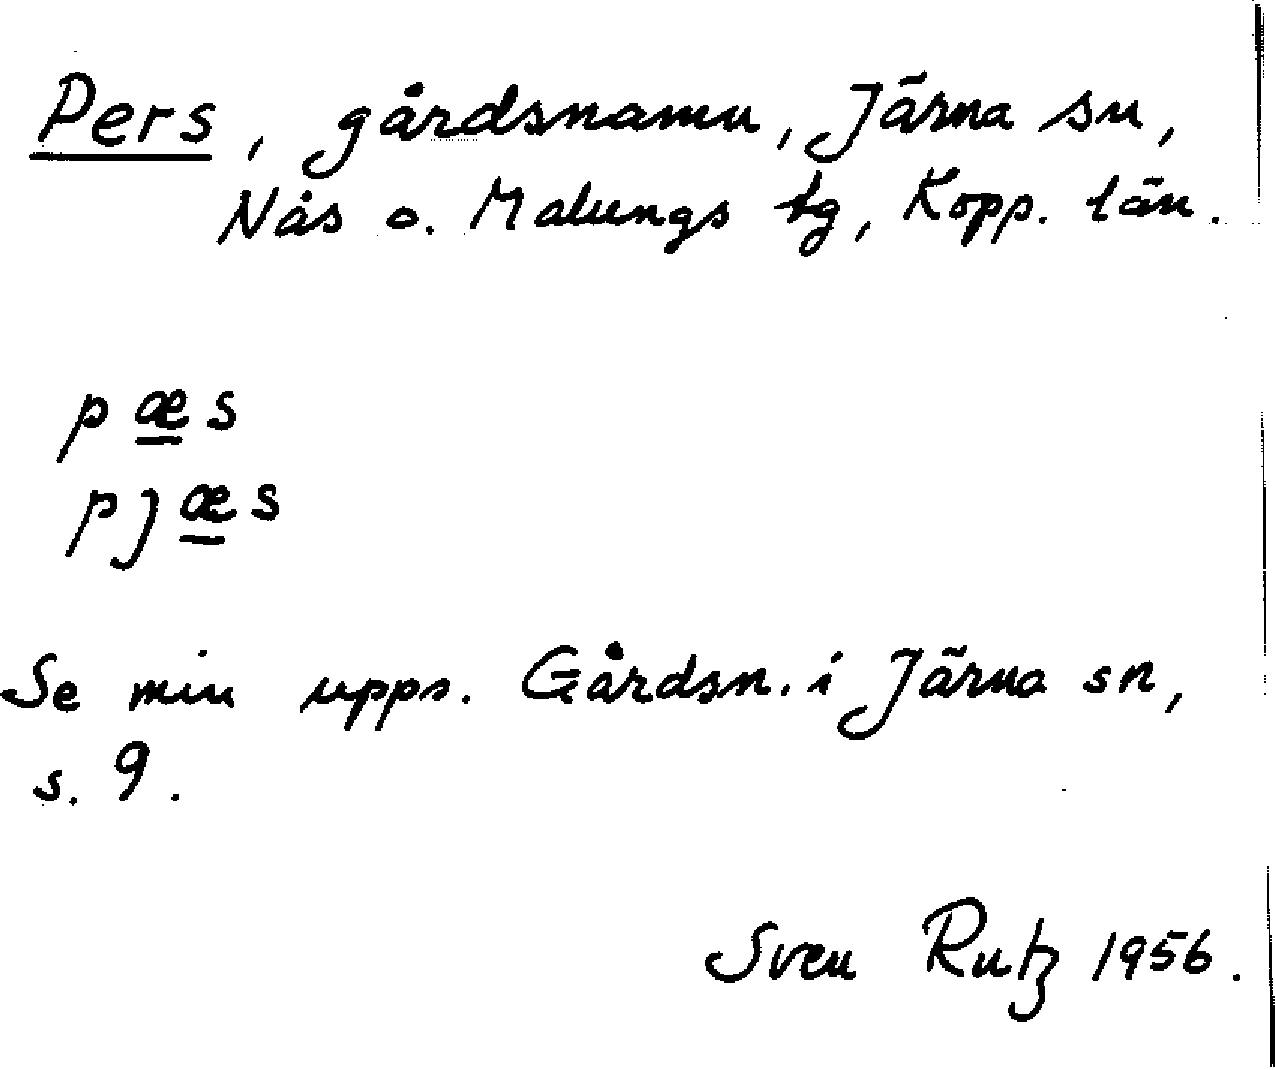 Pers, gårdsnamn, Järna sn,
Nås o. Malungs tg, Kopp. län.
p æ s
p j æ s
Se min upps. Gårdsn. i Järna sn,
s. 9.
Sven Rutz 1956.